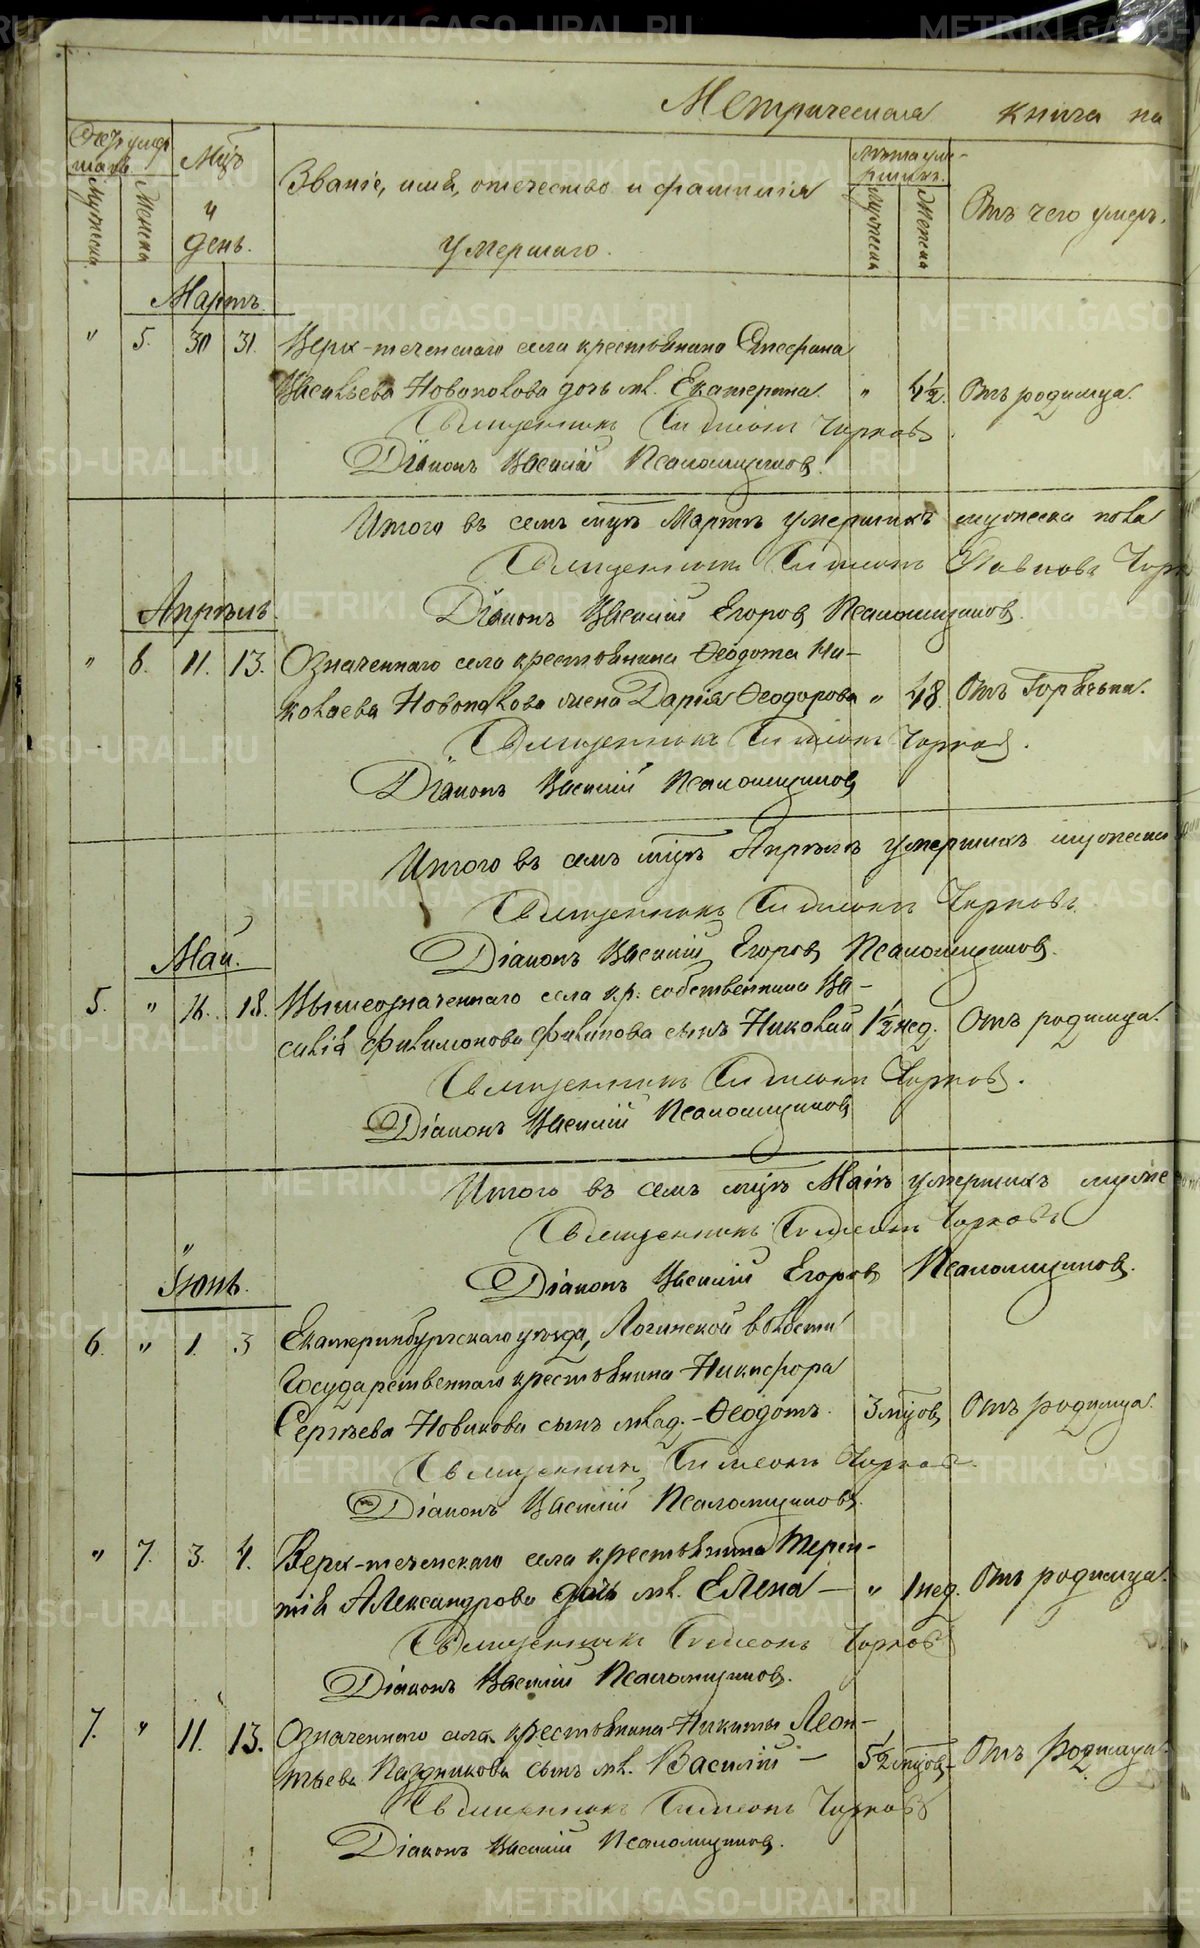 Метрическая книга на
Счетъ умер
шихъ
Мужеска
Женска
Мѣць
и
день.
Званіе, имя, отечество и фамилія
умершаго.
Лѣта уме-
ршихъ.
Мужеска
Женска
Отъ чего умеръ.
Мартъ
" 5. 30 31. Верх-теченскаго села крестьянина
Васильева Новополова дочь мл. Екатерина. " 4½. Отъ родимца.
Священникъ Симеонъ Чирковъ.
Діаконъ Василій Псаломщиковъ.
Итого въ семъ мцѣ Мартѣ умершихъ мужеска пола
Священникъ Симеонъ
Діаконъ Василій Егоровъ Псаломщиковъ.
Апрѣль.
" 6. 11. 13. Означеннаго села крестьянина Ѳеодота Ни-
колаева Новополова жена Дарія Ѳеодорова " 48. Отъ Горячьки.
Священникъ Симеонъ Чирковъ.
Діаконъ Василій Псаломщиковъ
Итого въ семъ мцѣ Апрѣлѣ умершихъ мужеска
Священникъ Симеонъ Чирковъ.
Діаконъ Василій Егоровъ Псаломщиковъ.
Май.
5. " 16. 18. Вышеозначеннаго села кр. собственника Ва-
силія Филимонова Филипова сынъ Николай 1½ нед. Отъ родимца.
Священникъ Симеонъ Чирковъ.
Діаконъ Василій Псаломщиковъ
Итого въ семъ мцѣ Маіѣ умершихъ муже
Священникъ Симеонъ Чирковъ
Діаконъ Василій Егоровъ Псаломщиковъ.
Іюнь.
6. " 1. 3 Екатеринбургскаго уѣзда, Логиновской волости
Государственнаго крестьянина Никифора
Сергѣева Новикова сынъ млад. - Ѳеодотъ. 3 мцовъ Отъ родимца.
Священникъ Симеонъ Чирковъ.
Діаконъ Василій Псаломщиковъ.
" 7. 3. 4. Верх-теченскаго села крестьянина Терен-
тія Александрова дочь мл. Елена — " 1 нед. Отъ родимца.
Священникъ Симеонъ Чирковъ
Діаконъ Василій Псаломщиковъ.
7. " 11. 13. Означеннаго села крестьянина Никиты Леон-
тьева Паздникова сынъ мл. Василій — 5½ мцовъ Отъ родимца.
Священникъ Симеонъ Чирковъ
Діаконъ Василій Псаломщиковъ.
METRIKI.GASO-URAL.RU